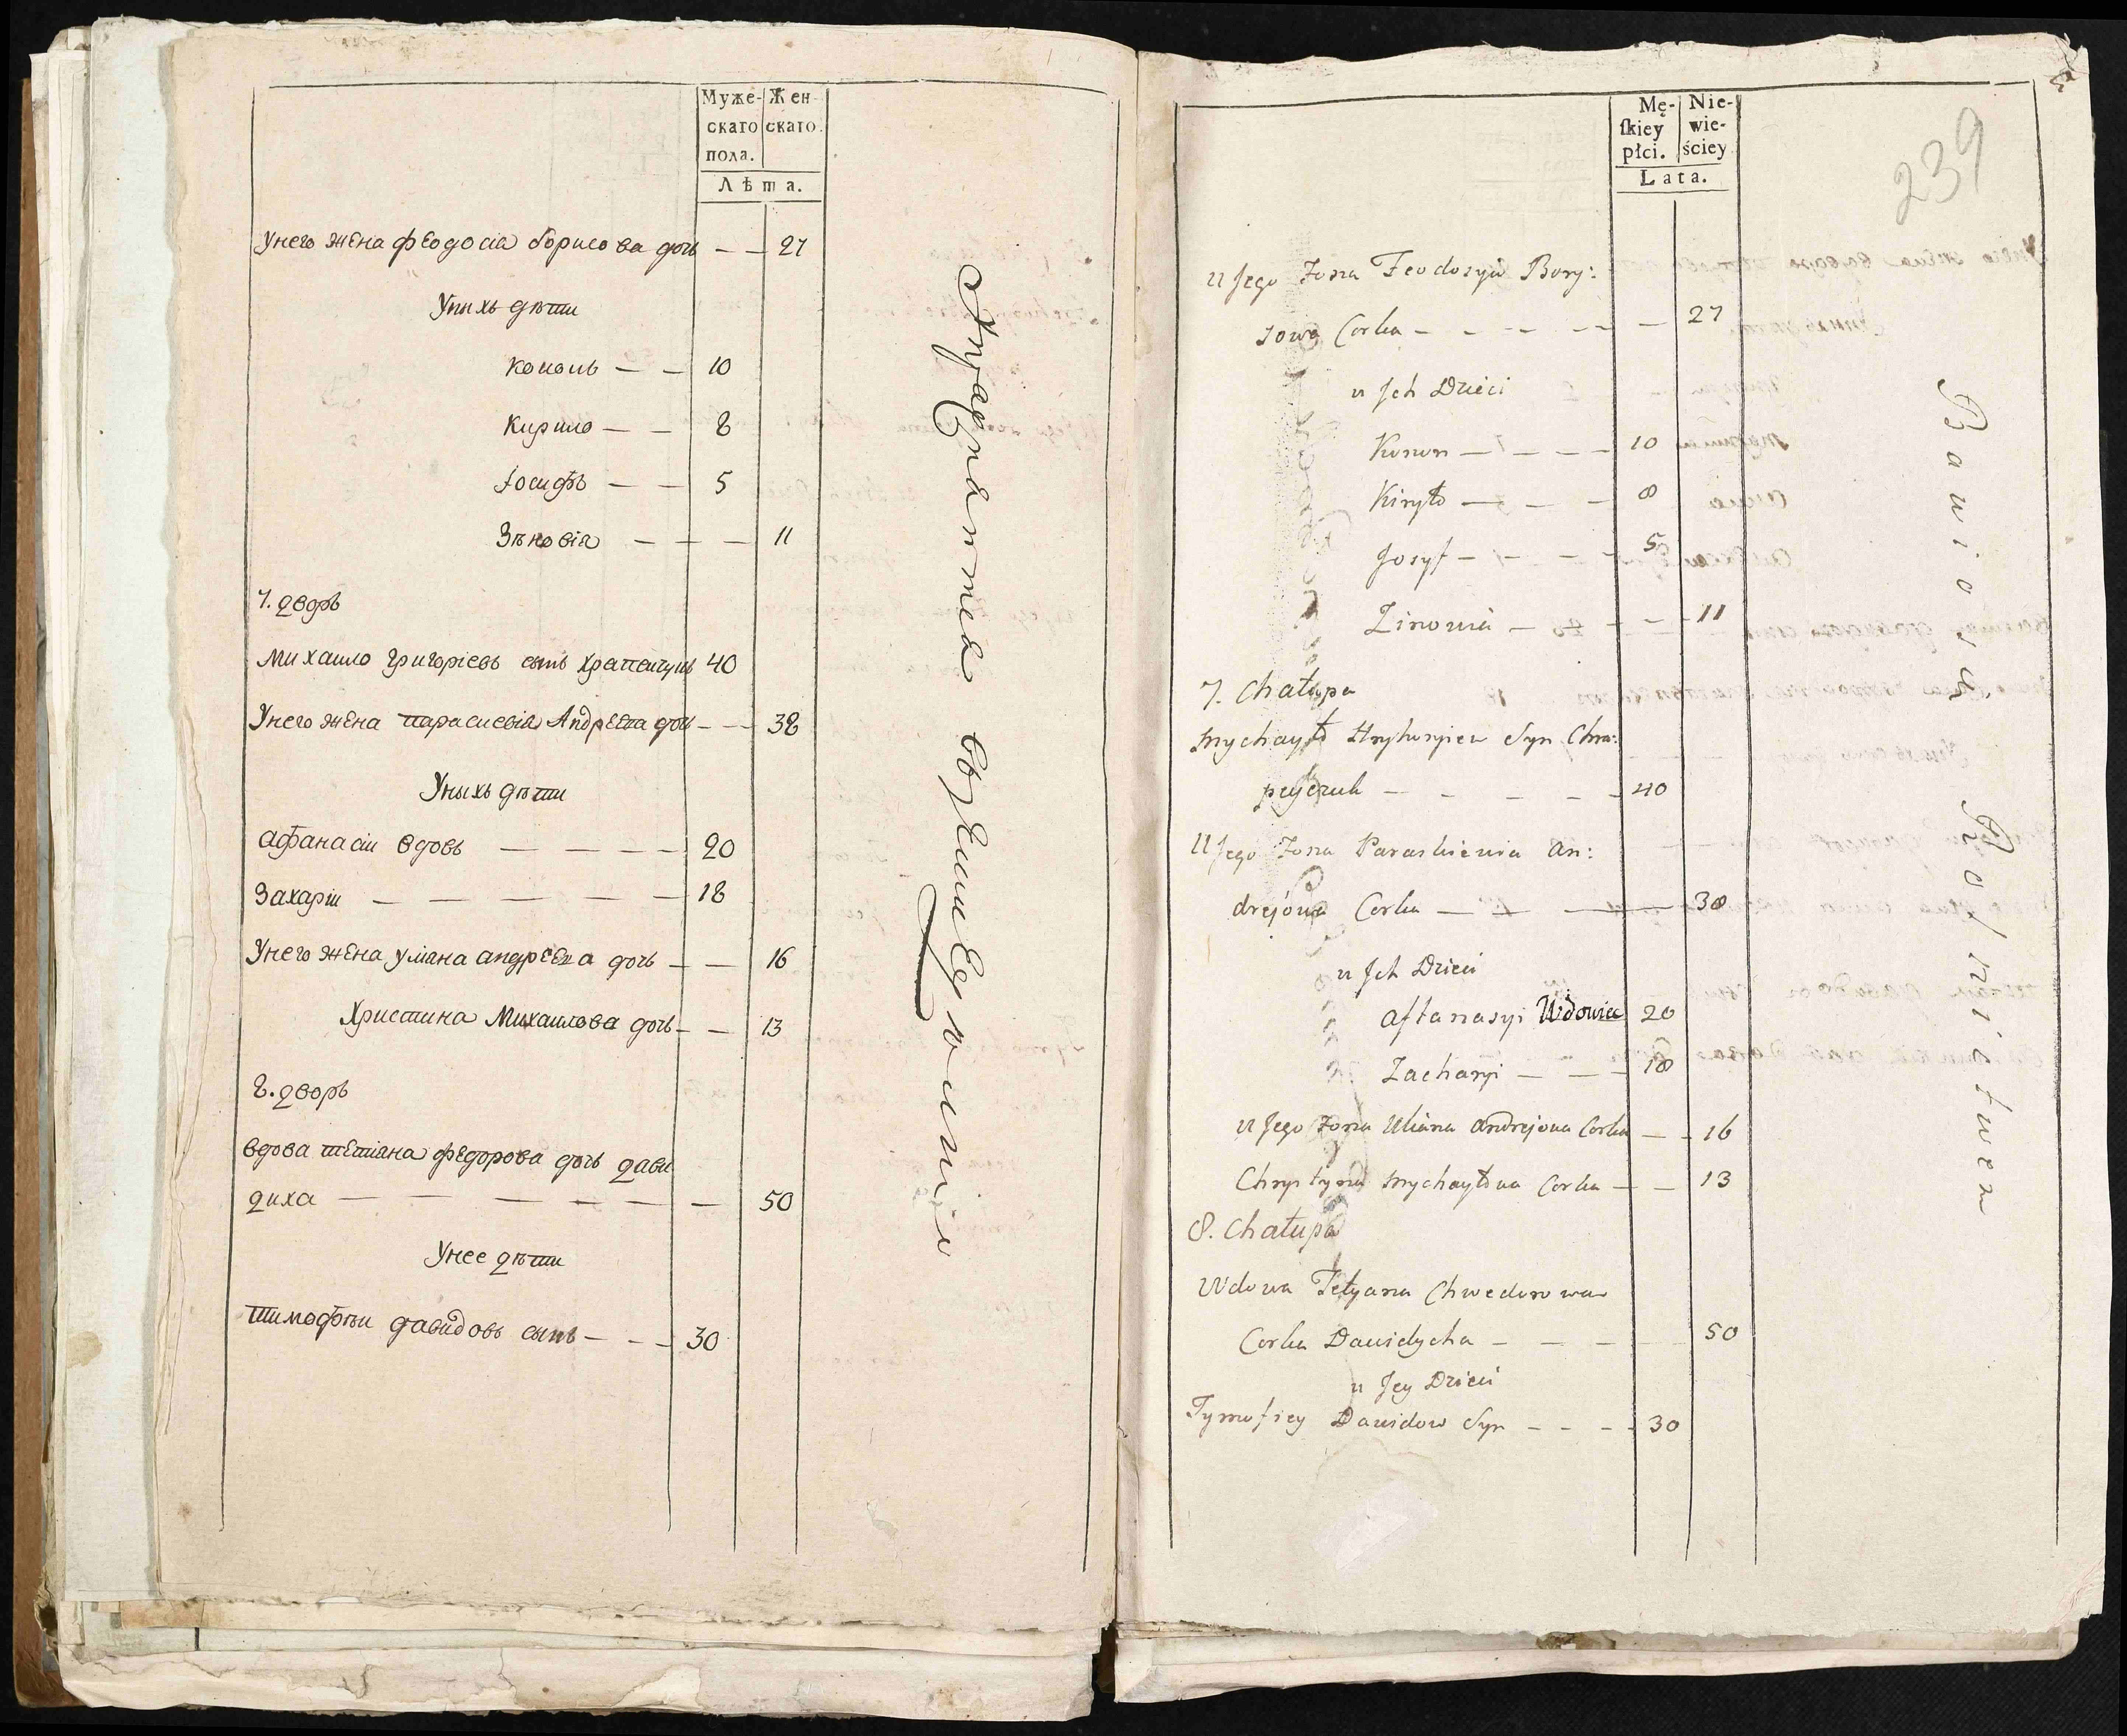 Муже- Жен-
скаго скаго.
пола.
Лѣта.
Унего жена Феодосіа борисова дочь — — 27
Уныхъ дѣти
Кононъ — — 10
Кирило — — 8
Іосифъ — — 5
Зѣновіа — — — 11
7. дворъ
Михаило Григоріевъ сынъ Храпенчукъ 40
Унего жена Параскевіа Андреева дочь — — 38
Уныхъ дѣти
Афанасіи вдовъ — — — — 20
Захаріи — — — — — — 18
Унего жена Уліана андреева дочь — — 16
Христина Михаилова дочь — — 13
8. дворъ
вдова Тетіана Федорова дочь дави
диха — — — — — — 50
Унее дѣти
Тимофѣи давидовъ сынъ — — — 30
упражняется въ земледѣліи
239
Mę- Nie-
ſkiey wie-
płci. ściey
Lata.
u Jego Żona Feodosyia Bory:
sowa Corka — — — — — 27
u Ich Dzieci
Konon — — — — 10
Kiryło — — — 8
Josyf — — — — 5
Zinowia — — — — 11
7. Chałupa
Mychayło Hryhoryiew Syn Chra:
peyczuk — — — — — 40
u Jego Żona Paraskiewia An:
drejowa Corka — — — — 38
u Ich Dzieci
Aftanasyi Wdowiec 20
Zacharyi — — — 18
u Jego Żona Uliana Andrejowa Corka — — 16
Chrystyna Mychayłowa Corka — — 13
8. Chałupa
Wdowa Tetyana Chwedorowa
Corka Dawidycha — — — — 50
u Jey Dzieci
Tymofiey Dawidow Syn — — — — 30
Bawio się Rolnictwem